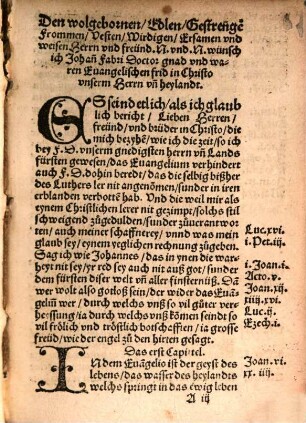 Den wolgebornen/Edlen/Gestrengẽ
Frommen/Vesten/Würdigen/Ersamen vnd
weisen Herrn vnd freünd. N. vnd. N. wünsch
ich Johañ Fabri Doctor gnad vnd waren
Euangelischen frid in Christo
vnserm Herrn vñ heylandt.
ES seind etlich/als ich glaub
lich bericht/Lieben Herren/
freünd/vnd brüder in Christo/die
mich bezyhẽ/wie ich die zeit/so ich
bey F. D. vnserm gnedigsten herrn vñ Lands
fürsten gewesen/das Euangelium verhindert
auch F. D. dohin beredt/das die selbig bißher
des Luthers ler nit angenõmen/sunder in iren
erblanden verbottẽ hab. Vnd die weil mir als
eynem Christlichen lerer nit gezimpt/solchs stil
schweigend zůgedulden/sunder zůuerantwor
ten/auch meiner schaffnerey/vnnd was mein
glaub sey/eynem yeglichen rechnung zůgeben.
Sag ich wie Johannes/das in ynen die warheyt
nit sey/yr red sey auch nit auß got/sunder
dem fürsten diser welt vñ aller finsterniß. Dañ
wer wolt also gotloß sein/der wider das Euãgeliũ
wer/durch welchs vnß so vil gůter verheyssung/
ia durch welchs vnß kõmen seindt so
vil frölich vnd tröstlich botschafften/ia grosse
freüd/wie der engel zů den hirten gesagt.
Luc. xvi.
i. Pet. iij.
i. Joan. i.
Acto. v.
Joan. xij.
xiiij. xvi.
Luc. ij.
Ezech. i.
Das erst Capitel.
IN dem Euãgelio ist der geyst des
lebens/das wasser des heylandts
welchs springt in das ewig leben
Joan. vi.
xx. iiij.
A iij